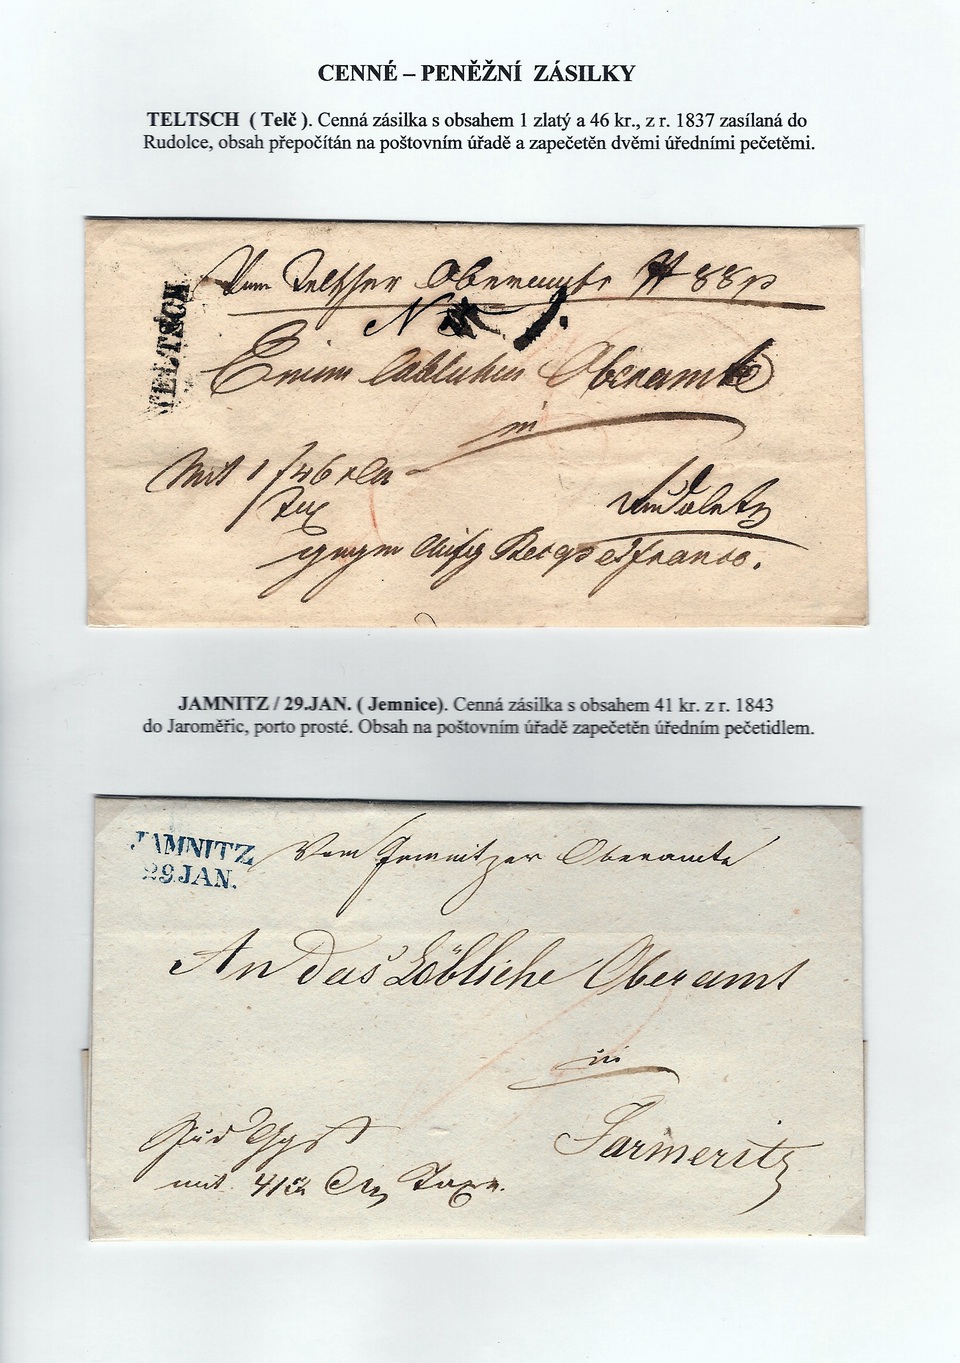 CENNÉ – PENĚŽNÍ ZÁSILKY
TELTSCH ( Telč ). Cenná zásilka s obsahem 1 zlatý a 46 kr., z r. 1837 zasílaná do
Rudolce, obsah přepočítán na poštovním úřadě a zapečetěn dvěmi úředními pečetěmi.
TELTSCH
Vom Teltscher Oberamte
Oberamte
in
Mit 1 f 46
Rudoletz
franco.
JAMNITZ / 29.JAN. ( Jemnice). Cenná zásilka s obsahem 41 kr. z r. 1843
do Jaroměřic, porto prosté. Obsah na poštovním úřadě zapečetěn úředním pečetidlem.
JAMNITZ
29.JAN.
Vom Jemnitzer Oberamte
An das Löbliche Oberamt
in
Jarmeritz
mit 41 Taxe.